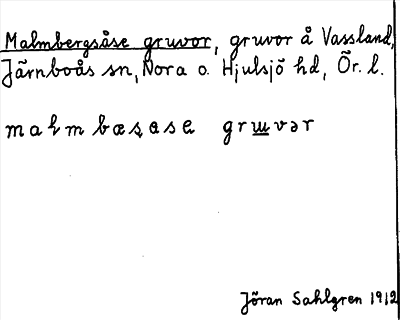 Malmbergsåse gruvor, gruvor å Vassland,
Järnboås sn, Nora o. Hjulsjö hd, Ör. l.
Jöran Sahlgren 1912